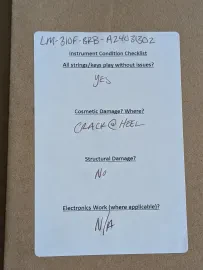 LM-310F-BRB-A24031302
Instrument Condition Checklist
All strings/keys play without issues?
YES
Cosmetic Damage? Where?
CRACK @ HEEL
Structural Damage?
NO
Electronics Work (where applicable)?
N/A